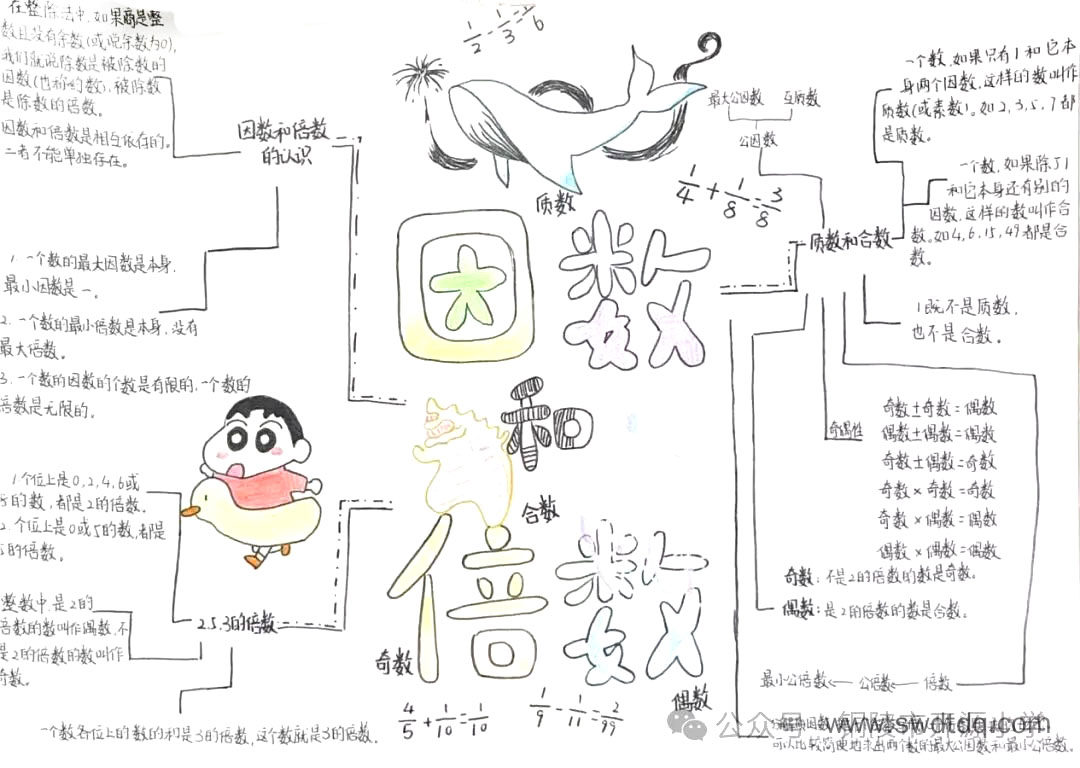 在整除法中，如果商是整
数且没有余数(或说余数为0)，
我们就说除数是被除数的
因数(也称约数)，被除数
是除数的倍数。
因数和倍数是相互依存的。
二者不能单独存在。
因数和倍数
的认识
1. 一个数的最大因数是本身.
最小因数是一。
2. 一个数的最小倍数是本身，没有
最大倍数。
3. 一个数的因数的个数是有限的，一个数的
倍数是无限的。
1个位上是0,2,4,6或
的数，都是2的倍数。
2.个位上是0或5的数，都是
5的倍数。
整数中，是2的
倍数的数叫作偶数，不
是2的倍数的数叫作
奇数。
2.5.3的倍数
一个数各位上的数的和是3的倍数，这个数就是3的倍数.
1/2 - 1/3 = 1/6
质数
1/4 + 1/8 = 3/8
因数
和
合数
倍数
奇数
偶数
4/5 + 1/10 = 1/10
1/9 - 1/11 = 2/99
最大公因数 互质数
公因数
质数和合数
一个数，如果只有1和它本
身两个因数，这样的数叫作
质数(或素数)。如2,3,5,7都
是质数。
一个数，如果除了1
和它本身还有别的
因数，这样的数叫作合
数。如4,6,15,49都是合
数。
1既不是质数，
也不是合数。
奇偶性
奇数±奇数=偶数
偶数±偶数=偶数
奇数±偶数=奇数
奇数×奇数=奇数
奇数×偶数=偶数
偶数×偶数=偶数
奇数：不是2的倍数的数是奇数。
偶数：是2的倍数的数是合数。
最小公倍数 公倍数 倍数
公众号
www.swdtdq.com
可以比较简便地求出两个数的最大公因数和最小公倍数。